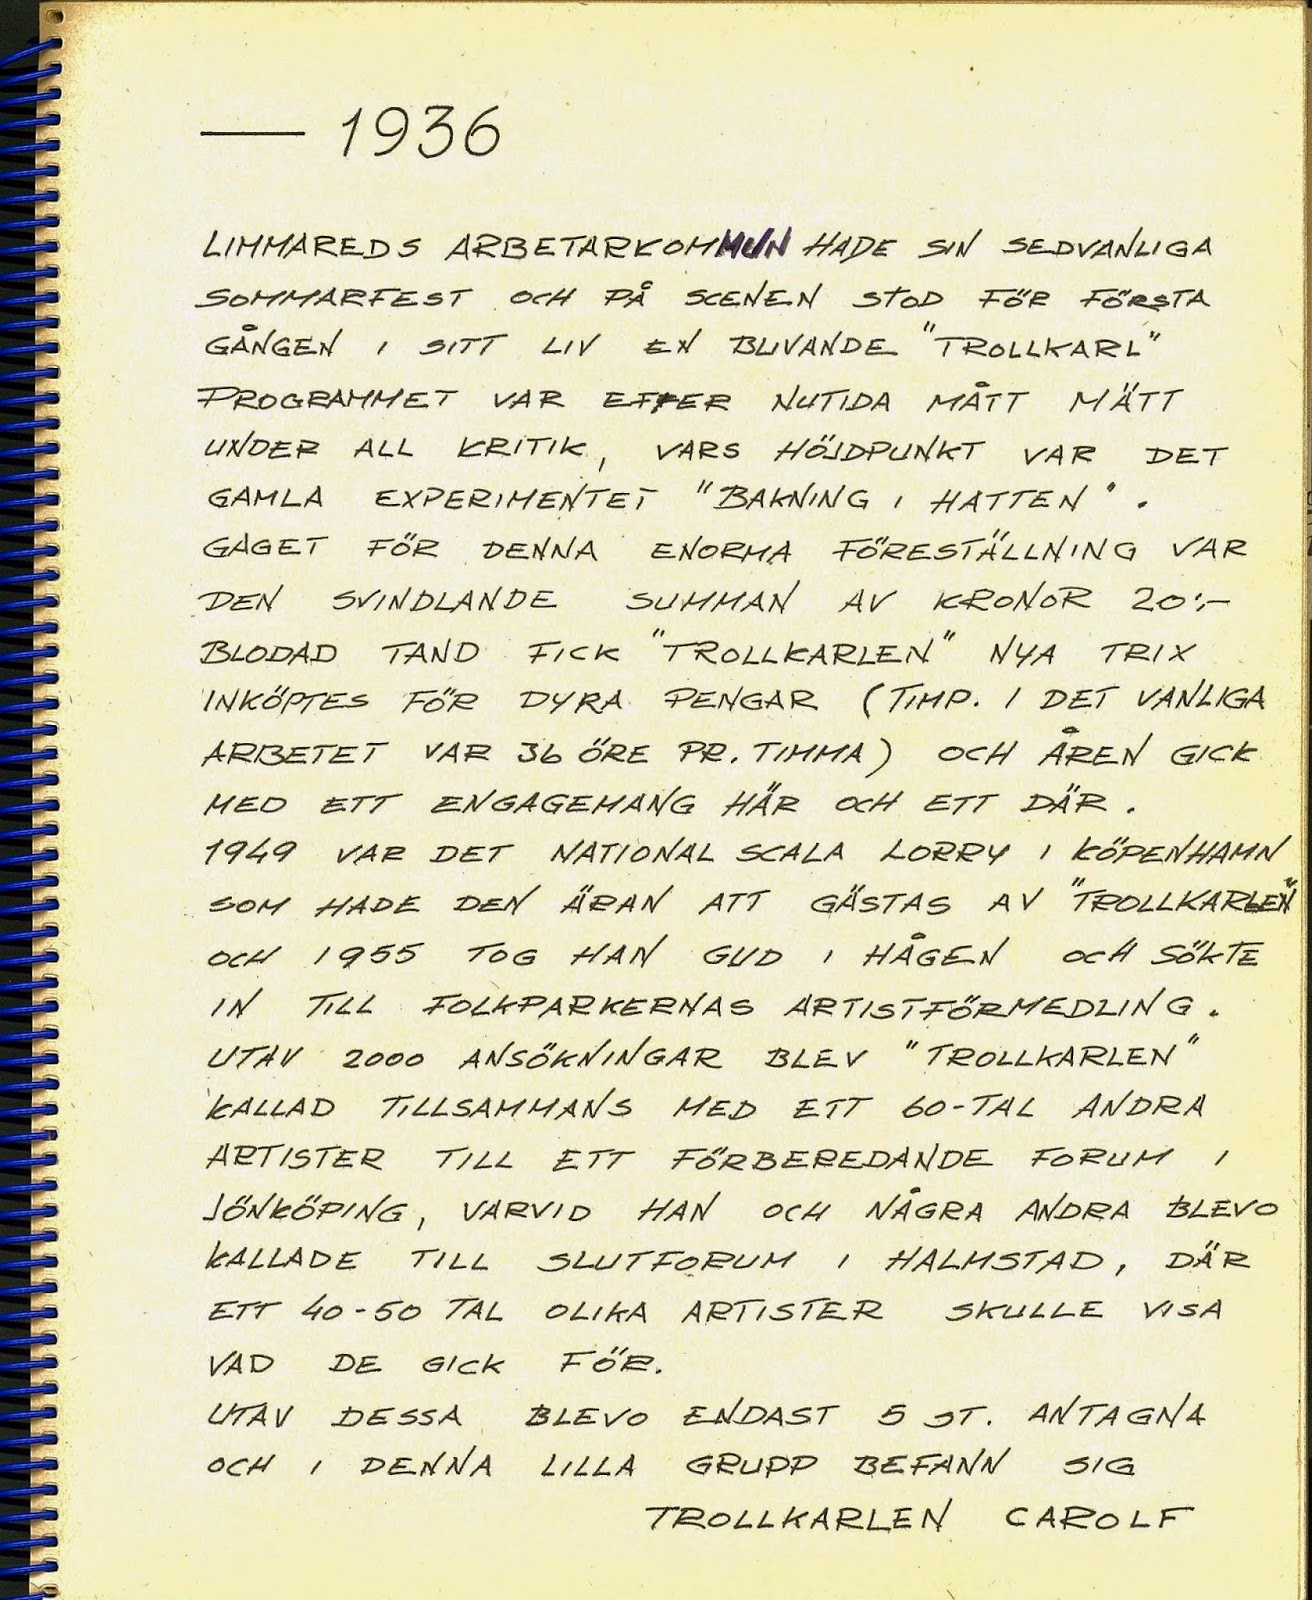 — 1936
LIMMAREDS ARBETARKOMMUN HADE SIN SEDVANLIGA
SOMMARFEST OCH PÅ SCENEN STOD FÖR FÖRSTA
GÅNGEN I SITT LIV EN BLIVANDE "TROLLKARL"
PROGRAMMET VAR EFTER NUTIDA MÅTT MÄTT
UNDER ALL KRITIK, VARS HÖJDPUNKT VAR DET
GAMLA EXPERIMENTET "BAKNING I HATTEN".
GAGET FÖR DENNA ENORMA FÖRESTÄLLNING VAR
DEN SVINDLANDE SUMMAN AV KRONOR 20:-
BLODAD TAND FICK "TROLLKARLEN" NYA TRIX
INKÖPTES FÖR DYRA PENGAR (TIMP. I DET VANLIGA
ARBETET VAR 36 ÖRE PR. TIMMA) OCH ÅREN GICK
MED ETT ENGAGEMANG HÄR OCH ETT DÄR.
1949 VAR DET NATIONAL SCALA LORRY I KÖPENHAMN
SOM HADE DEN ÄRAN ATT GÄSTAS AV "TROLLKARLEN"
OCH 1955 TOG HAN GUD I HÅGEN OCH SÖKTE
IN TILL FOLKPARKERNAS ARTISTFÖRMEDLING.
UTAV 2000 ANSÖKNINGAR BLEV "TROLLKARLEN"
KALLAD TILLSAMMANS MED ETT 60-TAL ANDRA
ARTISTER TILL ETT FÖRBEREDANDE FORUM I
JÖNKÖPING, VARVID HAN OCH NÅGRA ANDRA BLEVO
KALLADE TILL SLUTFORUM I HALMSTAD, DÄR
ETT 40-50 TAL OLIKA ARTISTER SKULLE VISA
VAD DE GICK FÖR.
UTAV DESSA BLEVO ENDAST 5 ST. ANTAGNA
OCH I DENNA LILLA GRUPP BEFANN SIG
TROLLKARLEN CAROLF